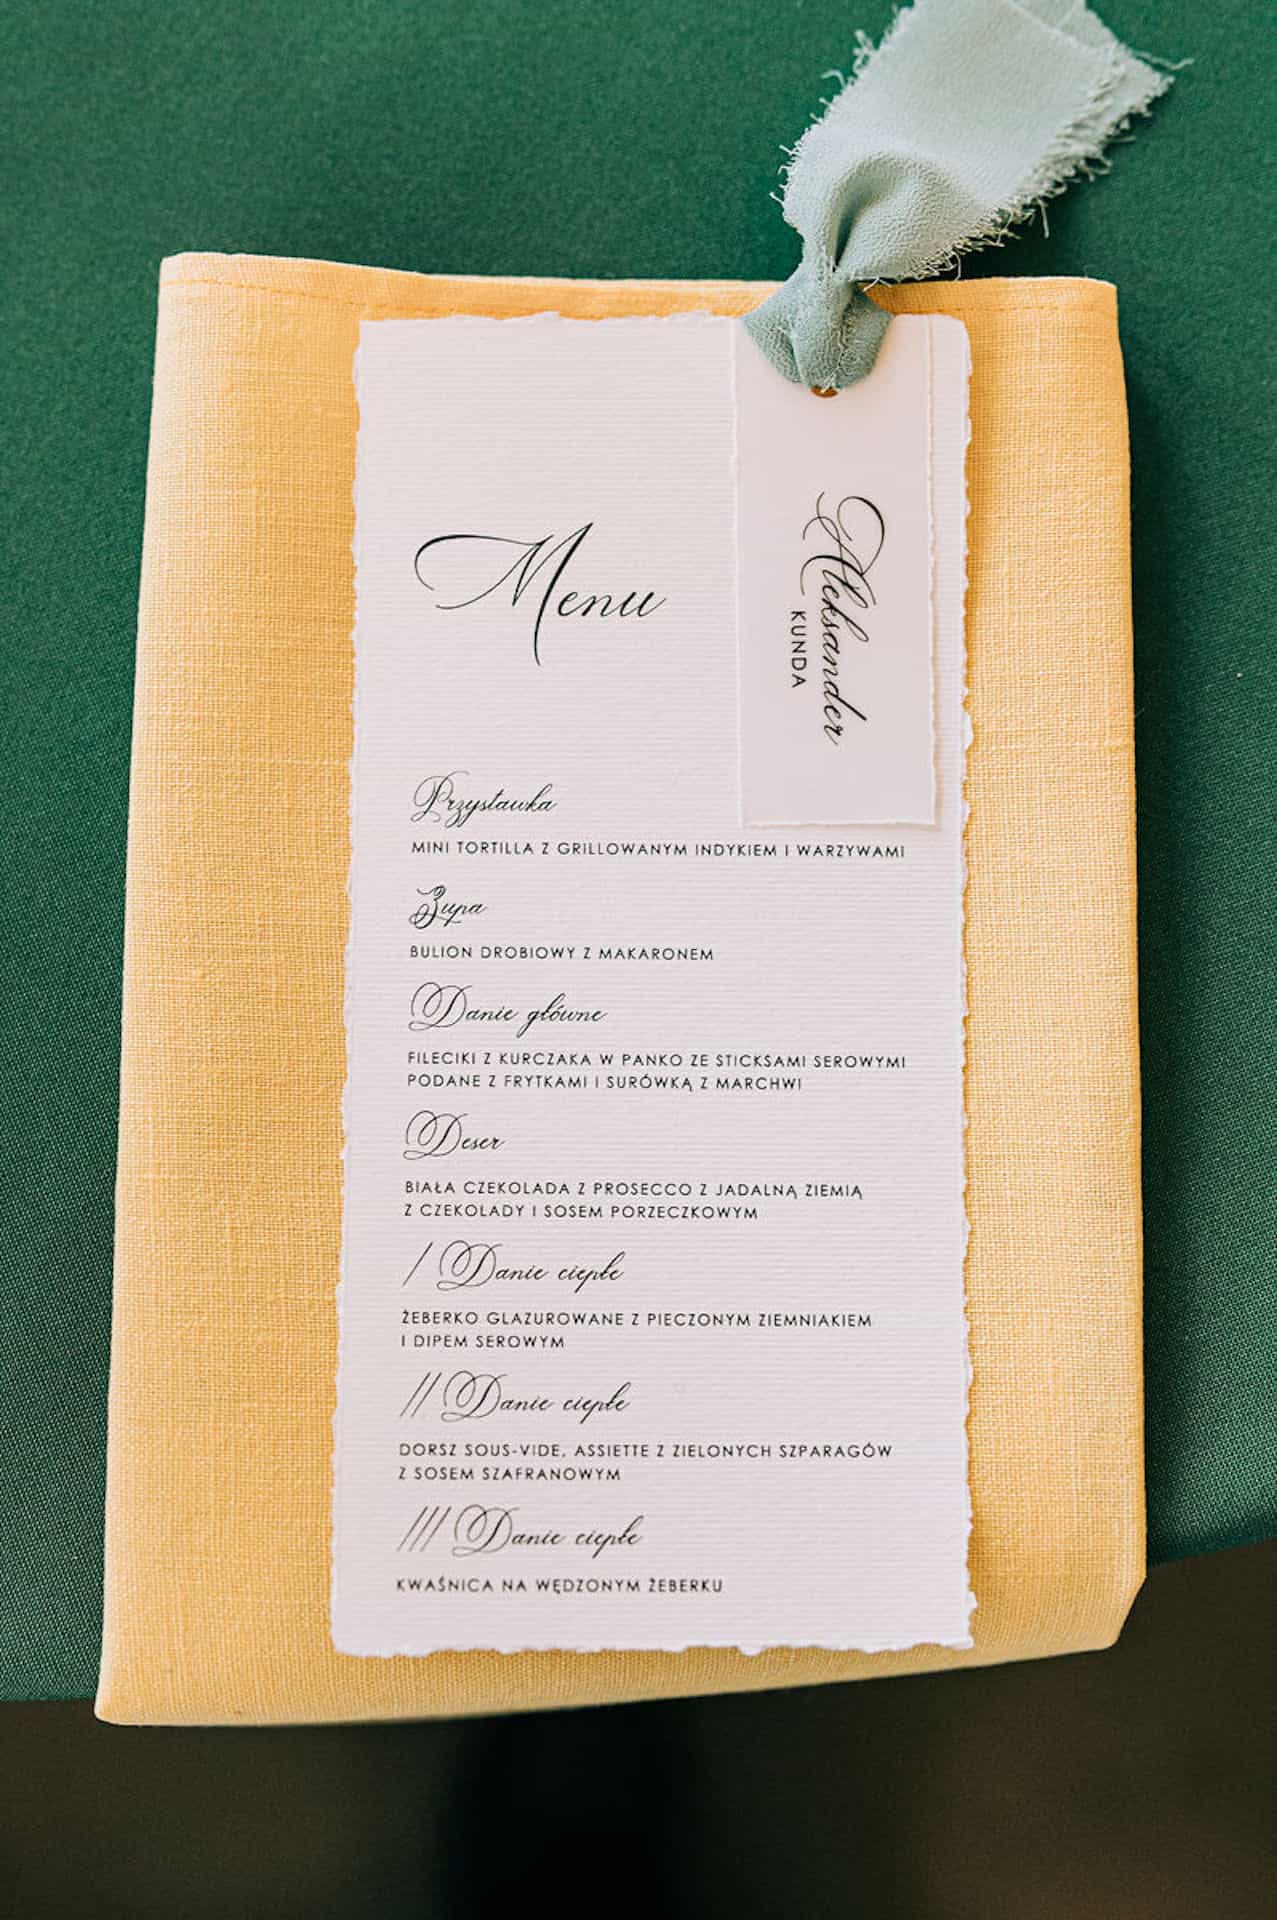 Menu
Aleksander
KUNDA
Przystawka
MINI TORTILLA Z GRILLOWANYM INDYKIEM I WARZYWAMI
Zupa
BULION DROBIOWY Z MAKARONEM
Danie główne
FILECIKI Z KURCZAKA W PANKO ZE STICKSAMI SEROWYMI
PODANE Z FRYTKAMI I SURÓWKĄ Z MARCHWI
Deser
BIAŁA CZEKOLADA Z PROSECCO Z JADALNĄ ZIEMIĄ
Z CZEKOLADY I SOSEM PORZECZKOWYM
/ Danie ciepłe
ŻEBERKO GLAZUROWANE Z PIECZONYM ZIEMNIAKIEM
I DIPEM SEROWYM
// Danie ciepłe
DORSZ SOUS-VIDE, ASSIETTE Z ZIELONYCH SZPARAGÓW
Z SOSEM SZAFRANOWYM
/// Danie ciepłe
KWAŚNICA NA WĘDZONYM ŻEBERKU